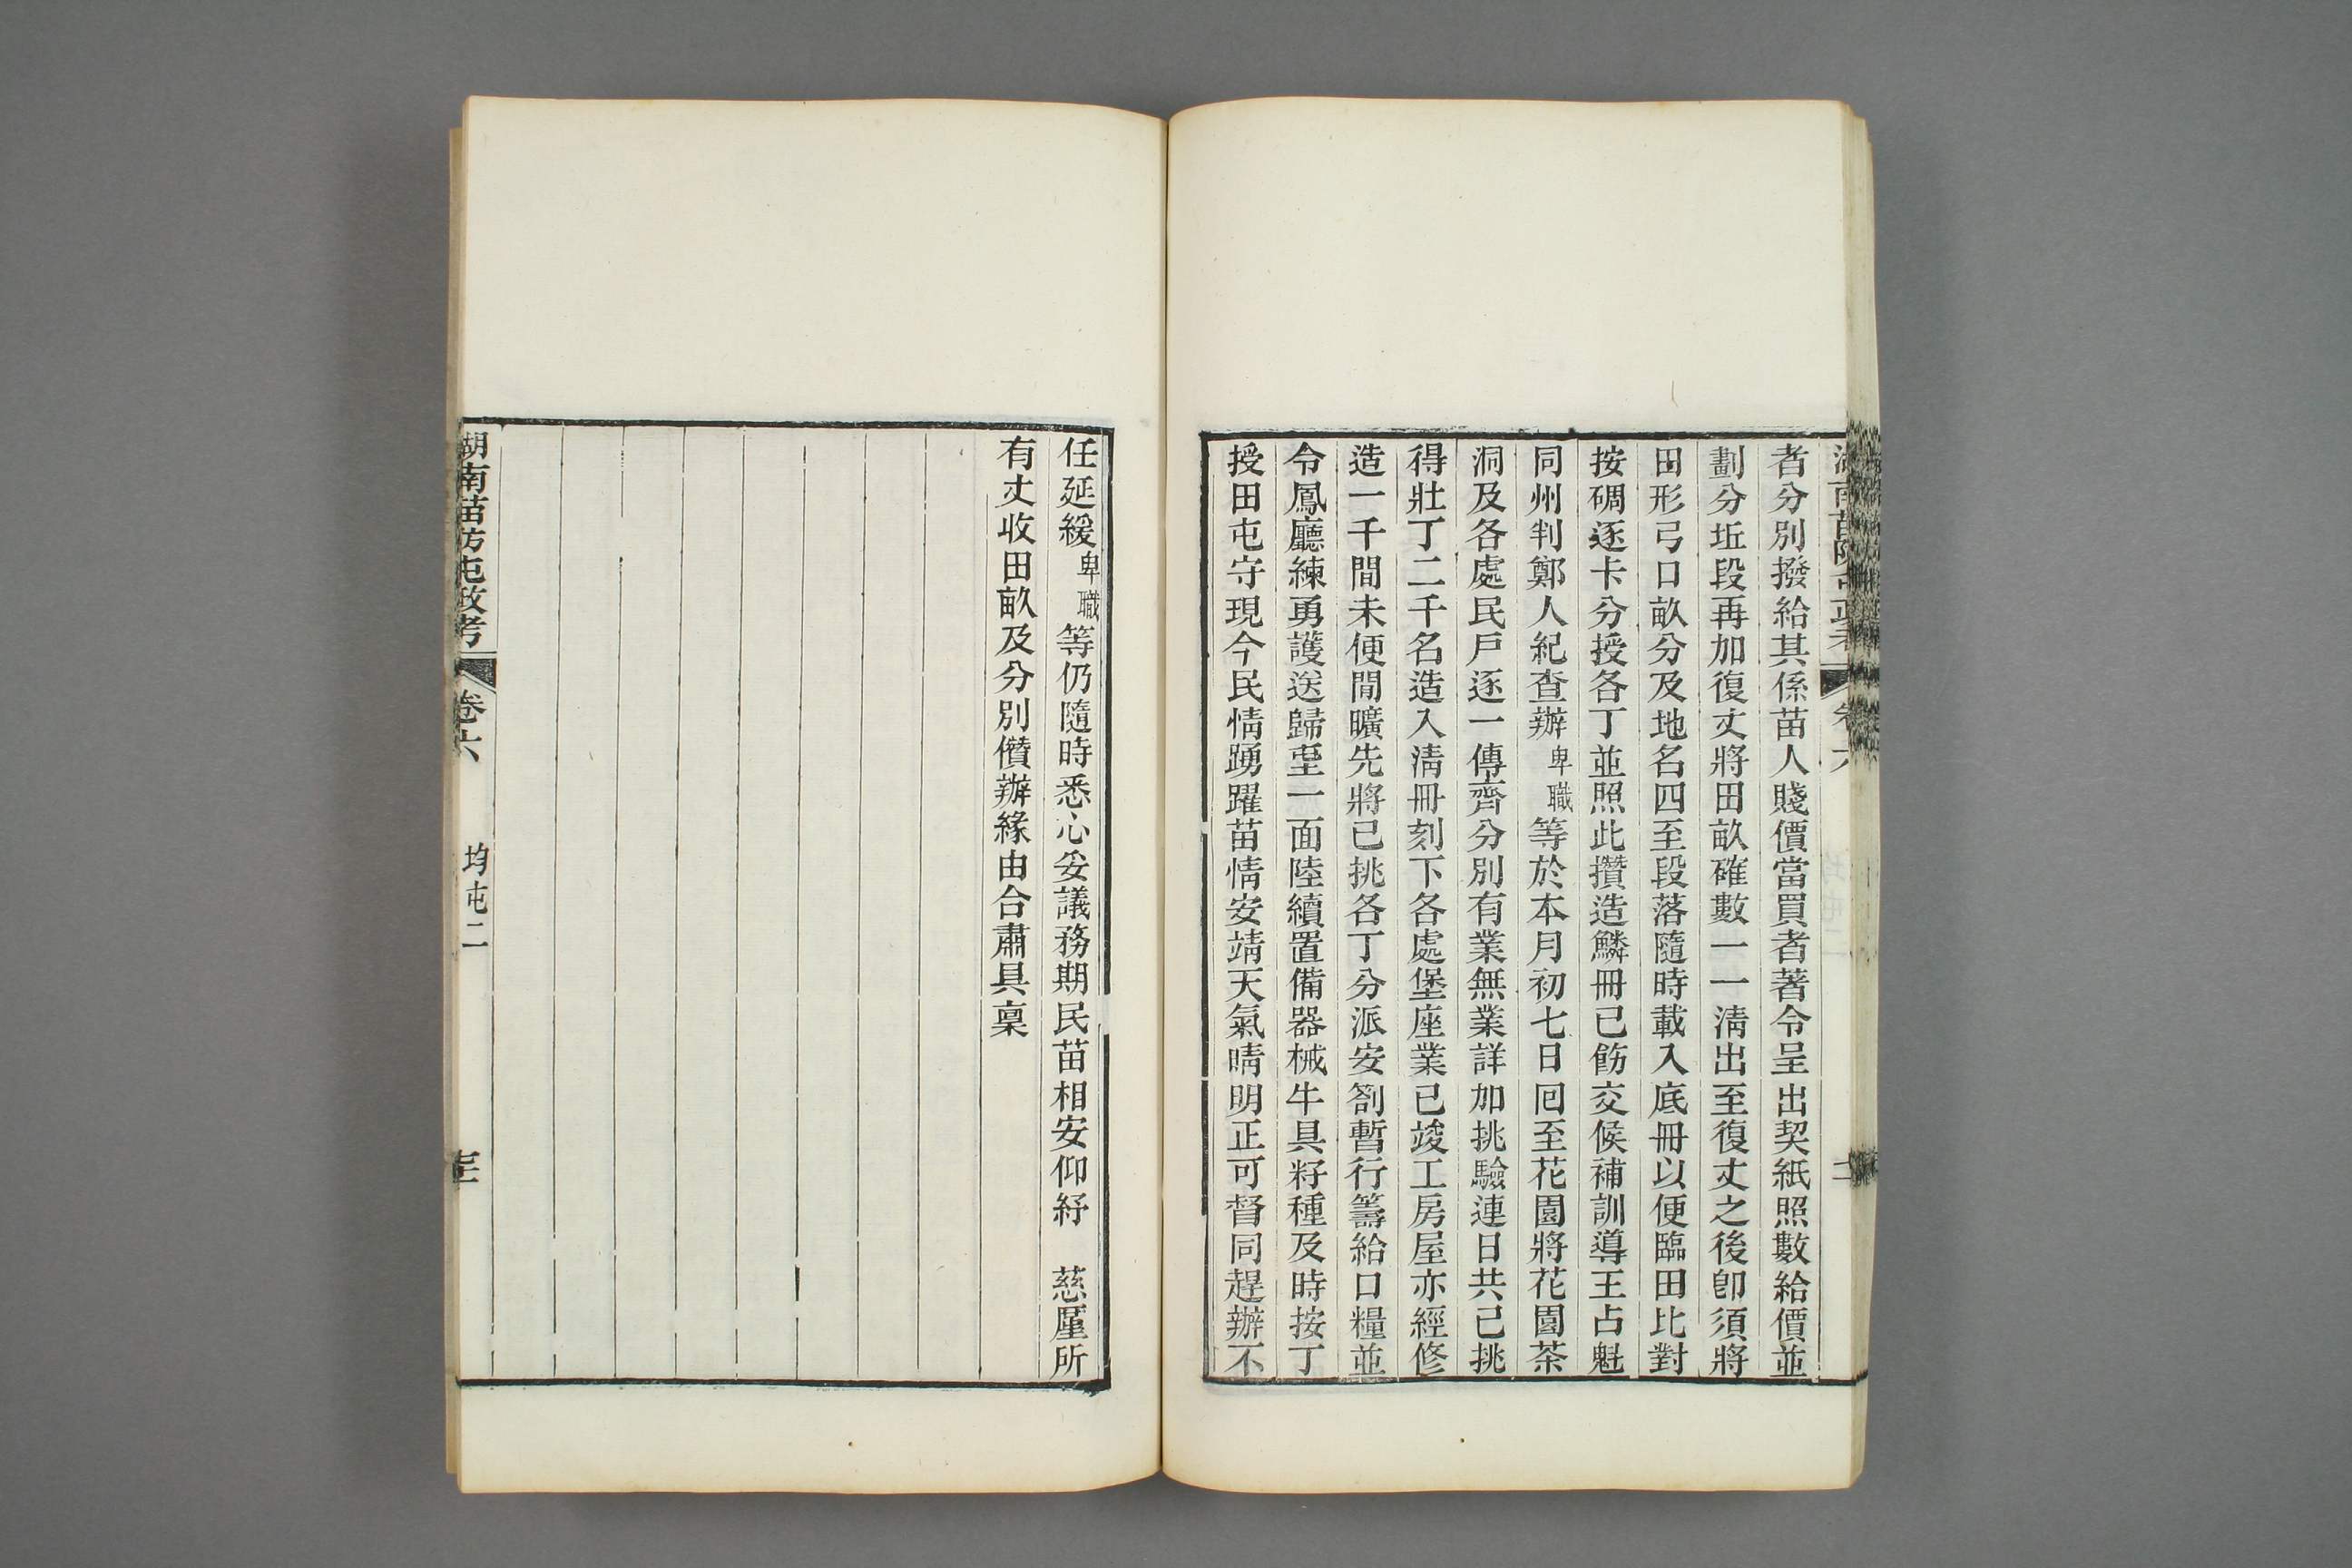 者分別撥給其係苗人賤價當買者著令呈出契紙照數給價並
劃分坵段再加復丈將田畝確數一一淸出至復丈之後卽須將
田形弓口畝分及地名四至段落隨時載入底冊以便臨田比對
按碉逐卡分授各丁並照此攢造鱗冊已飭交候補訓導王占魁
同州判鄭人紀查辦卑職等於本月初七日囘至花園將花園茶
洞及各處民戶逐一傳齊分別有業無業詳加挑驗連日共已挑
得壯丁二千名造入淸冊刻下各處堡座業已竣工房屋亦經修
造一千間未便閒曠先將已挑各丁分派安劄暫行籌給口糧並
令鳳廳練勇護送歸堊一面陸續置備器械牛具籽種及時按丁
授田屯守現今民情踴躍苗情安靖天氣晴明正可督同趕辦不
任延緩卑職等仍隨時悉心妥議務期民苗相安仰紓 慈廑所
有丈收田畝及分別儹辦緣由合肅具稟
湖南苗防屯政考 卷六 均屯二